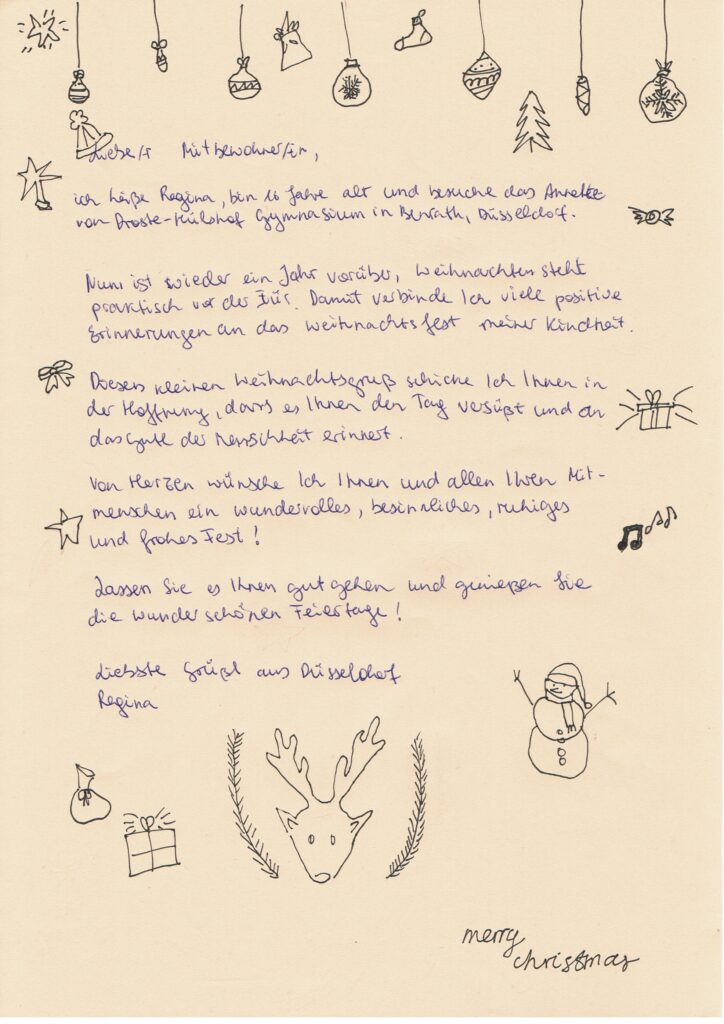 Liebe/r Mitbewohner/in,
ich heiße Regina, bin 16 Jahre alt und besuche das Annette
von Droste-Hülshof Gymnasium in Benrath, Düsseldorf.
Nun ist wieder ein Jahr vorüber, Weihnachten steht
praktisch vor der Tür. Damit verbinde Ich viele positive
Erinnerungen an das Weihnachtsfest meiner Kindheit.
Diesen kleinen Weihnachtsgruß schicke Ich Ihnen in
der Hoffnung, dass es Ihnen den Tag versüßt und an
das Gute der Menschheit erinnert.
Von Herzen wünsche Ich Ihnen und allen Ihren Mit-
menschen ein wundervolles, besinnliches, ruhiges
und frohes Fest!
Lassen Sie es Ihnen gut gehen und genießen Sie
die wunderschönen Feiertage!
Liebste Grüße aus Düsseldorf
Regina
merry
christmas